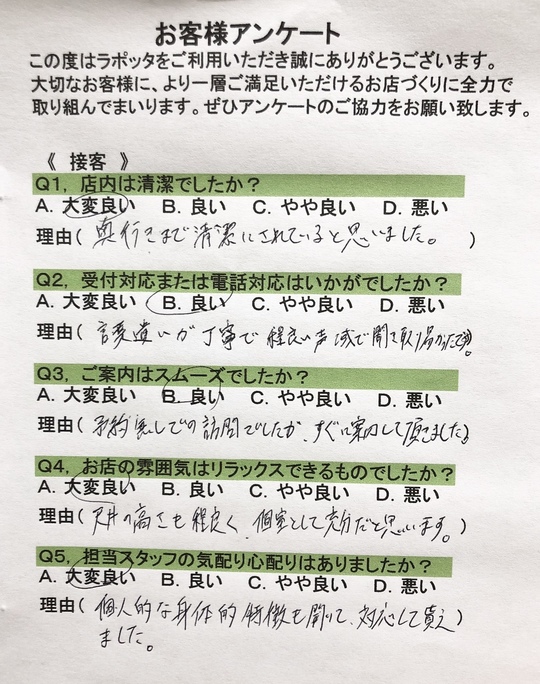 お客様アンケート
この度はラポッタをご利用いただき誠にありがとうございます。
大切なお客様に、より一層ご満足いただけるお店づくりに全力で
取り組んでまいります。ぜひアンケートのご協力をお願い致します。
《 接客 》
Q1, 店内は清潔でしたか？
A. 大変良い B. 良い C. やや良い D. 悪い
理由( 奥行きまで清潔にされていると思いました。 )
Q2, 受付対応または電話対応はいかがでしたか？
A. 大変良い B. 良い C. やや良い D. 悪い
理由( 言葉遣いが丁寧で程良い声域で聞き取り易かったです。)
Q3, ご案内はスムーズでしたか？
A. 大変良い B. 良い C. やや良い D. 悪い
理由( 予約無しでの訪問でしたが、すぐに案内して頂きました)
Q4, お店の雰囲気はリラックスできるものでしたか？
A. 大変良い B. 良い C. やや良い D. 悪い
理由( 天井の高さも程良く、個室として充分だと思います。)
Q5, 担当スタッフの気配り心配りはありましたか？
A. 大変良い B. 良い C. やや良い D. 悪い
理由( 個人的な身体的特徴も聞いて、対応して貰え )
ました。